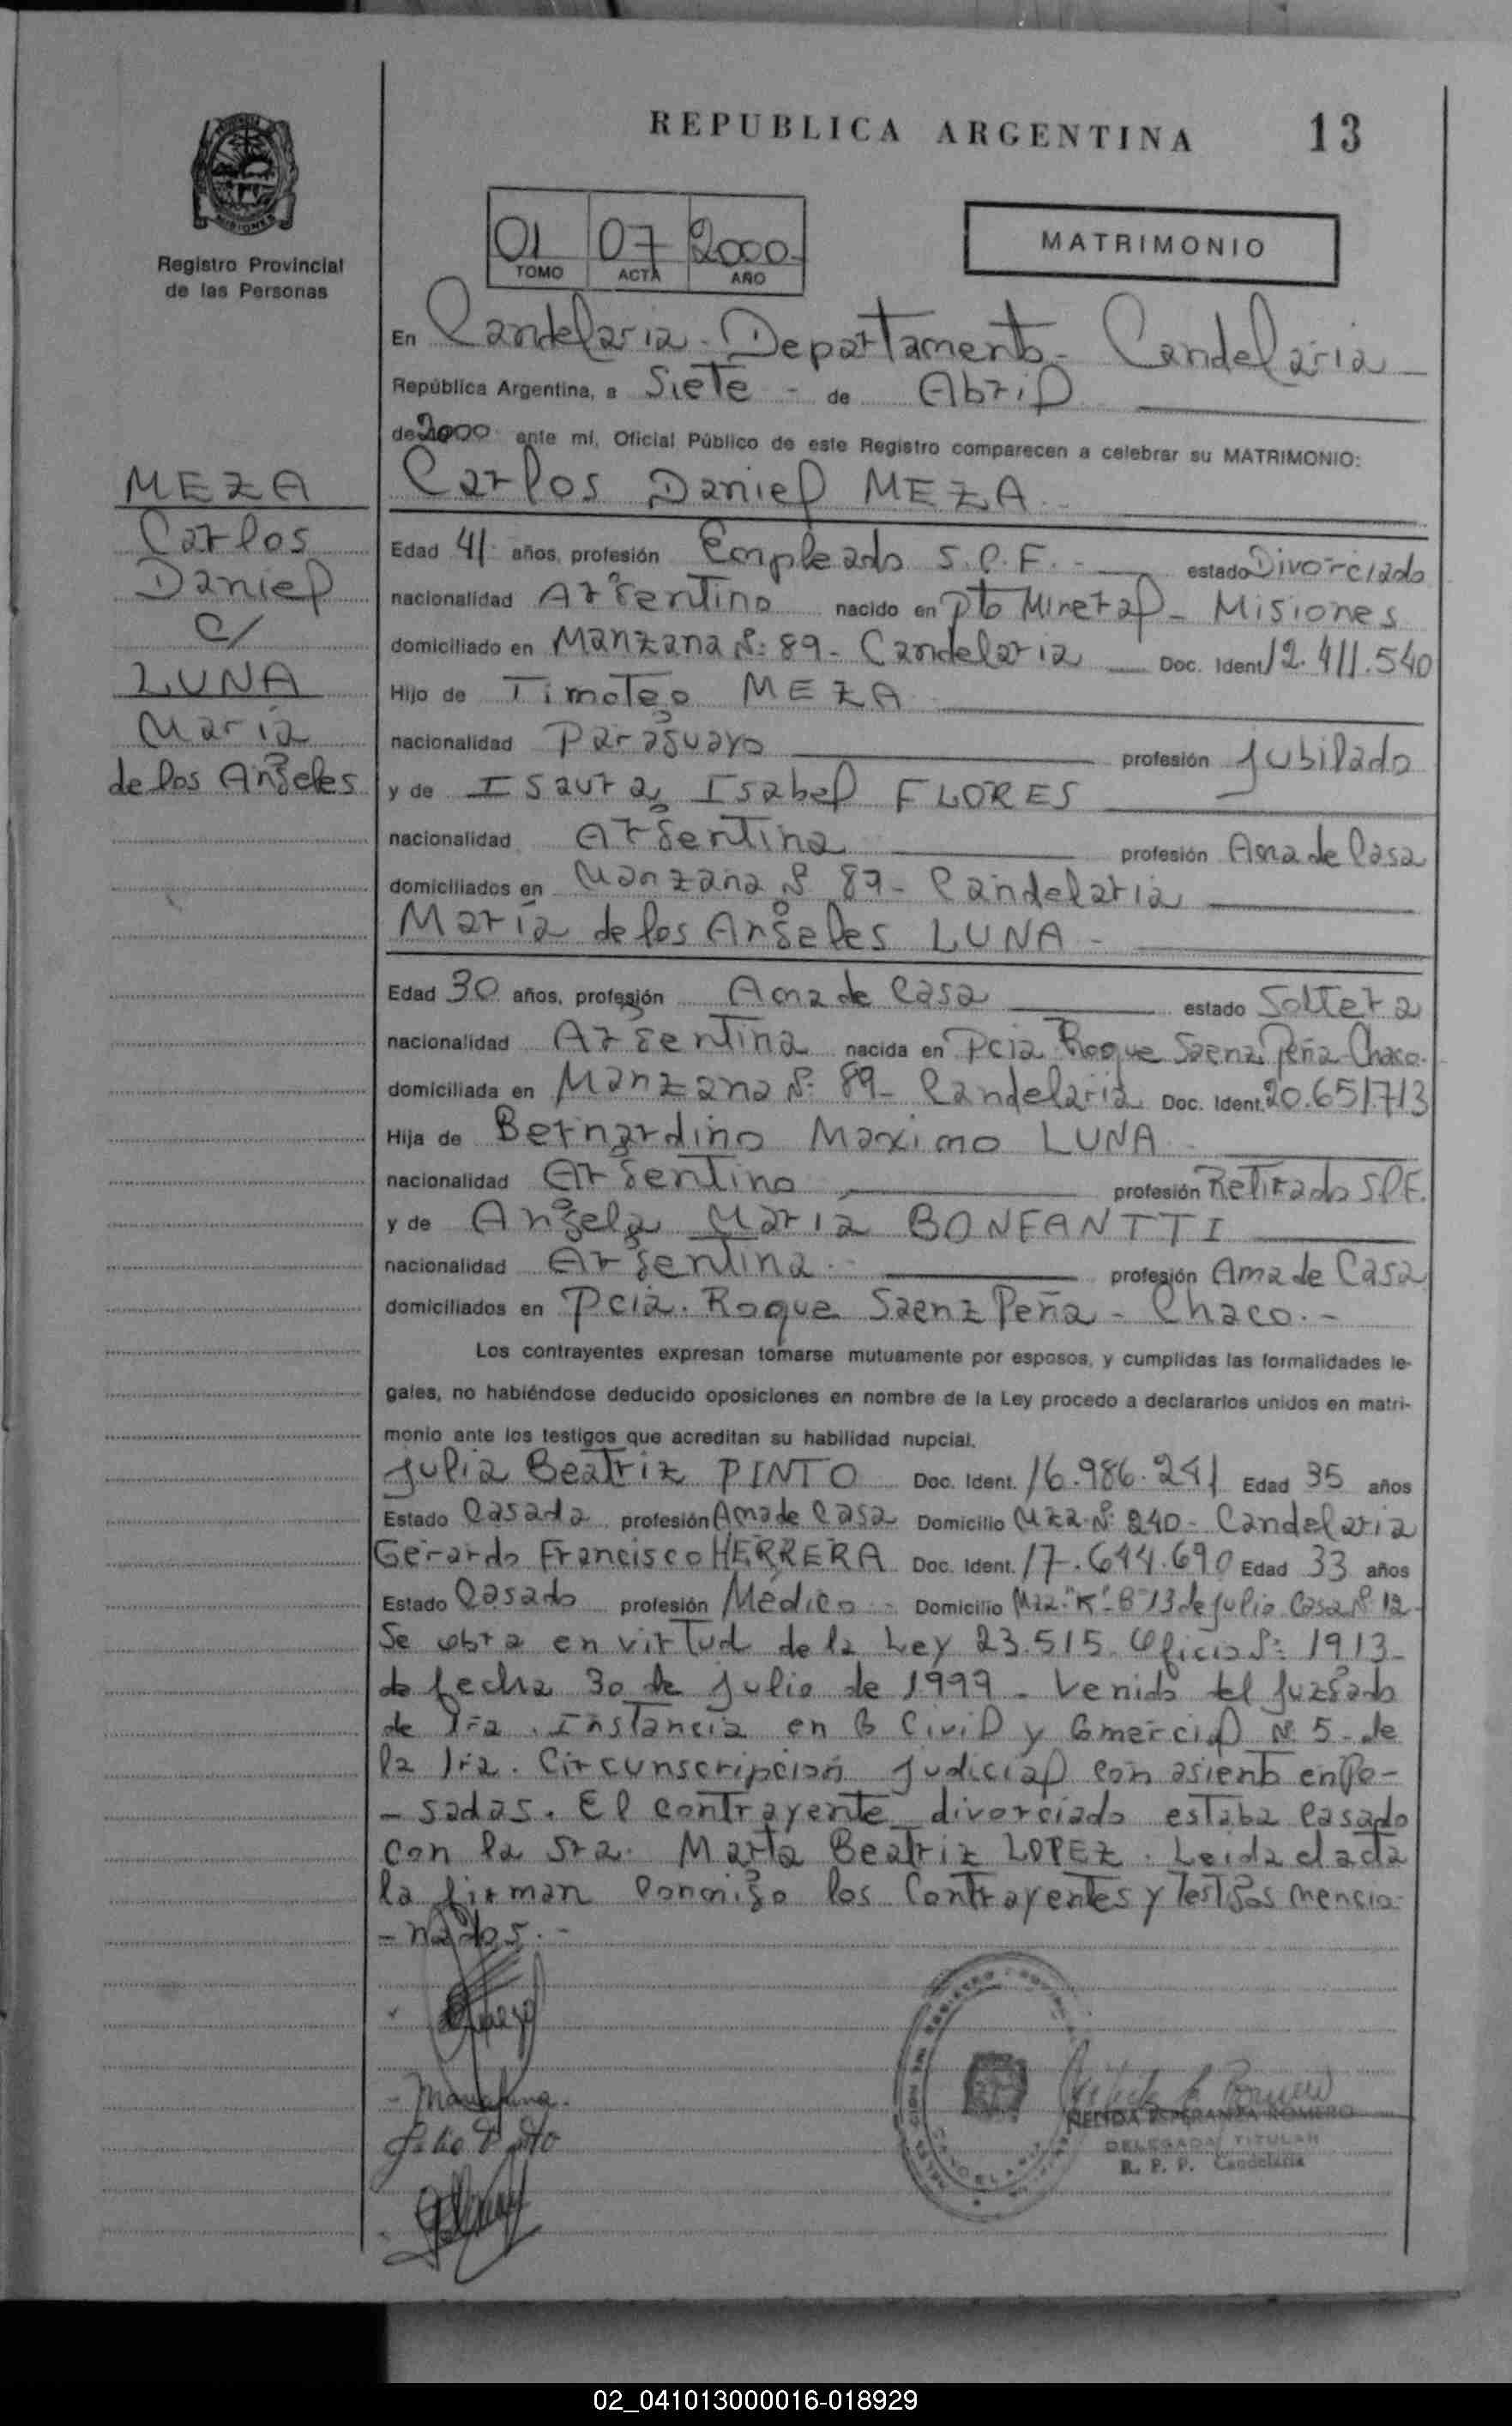 REPUBLICA ARGENTINA 13
MISIONES
Registro Provincial
de las Personas
01 07 2000-
TOMO ACTA AÑO
MATRIMONIO
En Candelaria - Departamento - Candelaria -
República Argentina, a Siete - de Abril
de 2000 ante mí, Oficial Público de este Registro comparecen a celebrar su MATRIMONIO:
MEZA
Carlos
Daniel
c/
LUNA
Maria
de los Angeles
Carlos Daniel MEZA -
Edad 41 años, profesión Empleado S.P.F. - estado Divorciado
nacionalidad Argentino nacido en Pto Mineral - Misiones
domiciliado en Manzana Nº: 89 - Candelaria Doc. Ident. 12.411.540
Hijo de Timoteo MEZA
nacionalidad Paraguayo profesión Jubilado
y de Isaura Isabel FLORES
nacionalidad Argentina profesión Ama de Casa
domiciliados en Manzana Nº 89 - Candelaria
María de los Angeles LUNA -
Edad 30 años, profesión Ama de Casa estado Soltera
nacionalidad Argentina nacida en Pcia Roque Saenz Peña-Chaco.-
domiciliada en Manzana Nº: 89 - Candelaria Doc. Ident. 20.651.713
Hija de Bernardino Maximo LUNA
nacionalidad Argentino profesión Retirado S.P.F.
y de Angela María BONFANTTI
nacionalidad Argentina. profesión Ama de Casa
domiciliados en Pcia. Roque Saenz Peña - Chaco. -
Los contrayentes expresan tomarse mutuamente por esposos, y cumplidas las formalidades le-
gales, no habiéndose deducido oposiciones en nombre de la Ley procedo a declararlos unidos en matri-
monio ante los testigos que acreditan su habilidad nupcial.
Julia Beatriz PINTO Doc. Ident. 16.986.241 Edad 35 años
Estado Casada profesión Ama de Casa Domicilio Mza. Nº 240 - Candelaria
Gerardo Francisco HERRERA Doc. Ident. 17.644.690 Edad 33 años
Estado Casado profesión Médico - Domicilio Mza "K" - Bº 13 de Julio Casa Nº 12 -
Se obra en virtud de la Ley 23.515. Oficio Nº: 1913-
de fecha 30 de Julio de 1999 - Venido del Juzgado
de 1ra. Instancia en lo Civil y Comercial Nº 5 - de
la 1ra. Circunscripción Judicial con asiento en Po-
- sadas. El contrayente divorciado estaba casado
con la Sra. Marta Beatriz LOPEZ. Leida el acta
la firman conmigo los Contrayentes y Testigos mencio-
- nados. -
NELIDA ESPERANZA ROMERO
DELEGADA TITULAR
R. P. P. Candelaria
02_041013000016-018929